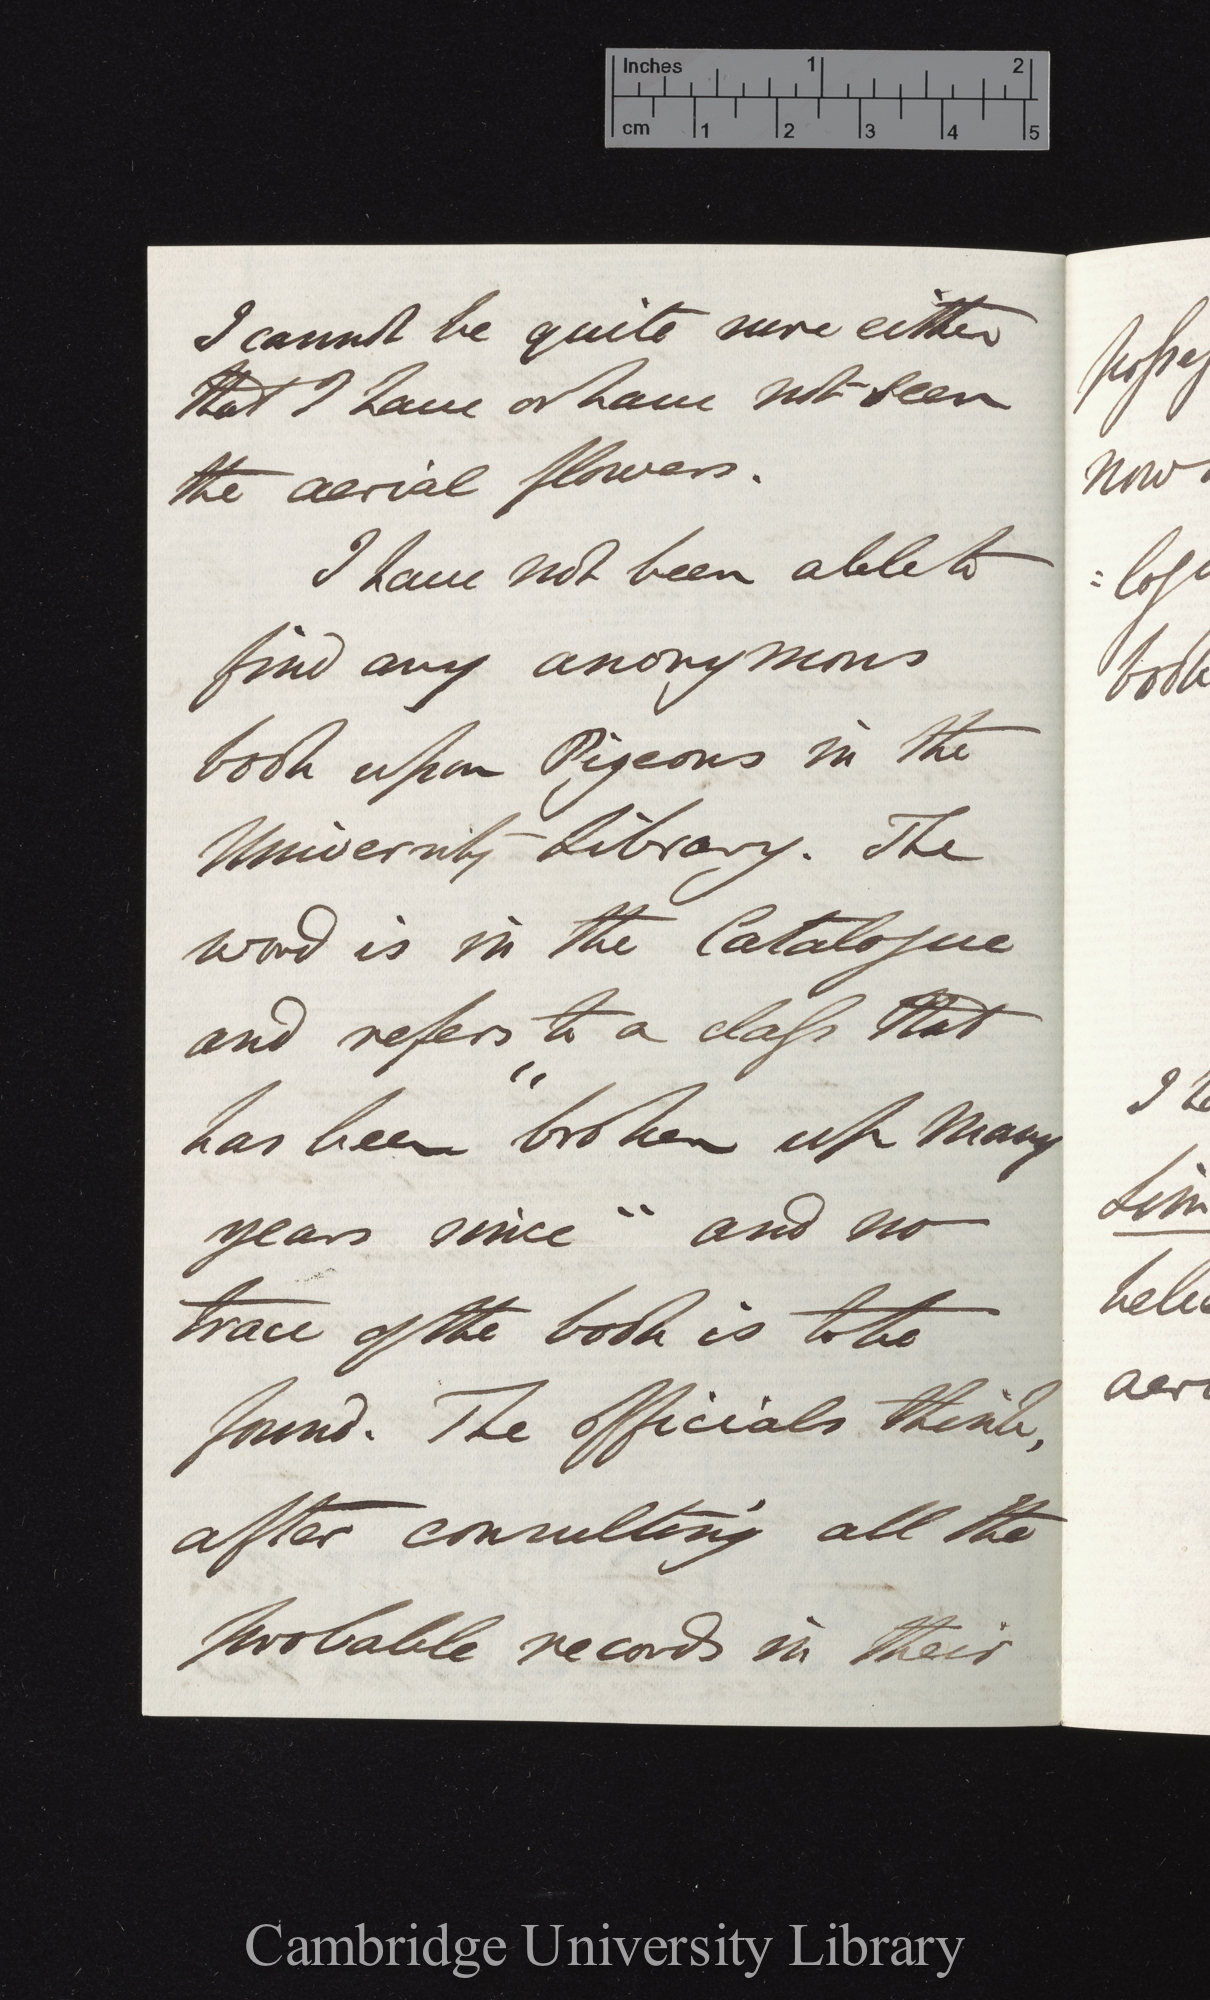 Inches 1 2
cm 1 2 3 4 5
I cannot be quite sure either
that I have or have not seen
the aerial flowers.
I have not been able to
find any anonymous
book upon Pigeons in the
University Library. The
word is in the Catalogue
and refers to a class that
has been "broken up many
years since" and no
trace of the book is to be
found. The officials think,
after consulting all the
probable records in their
now
I
Cambridge University Library